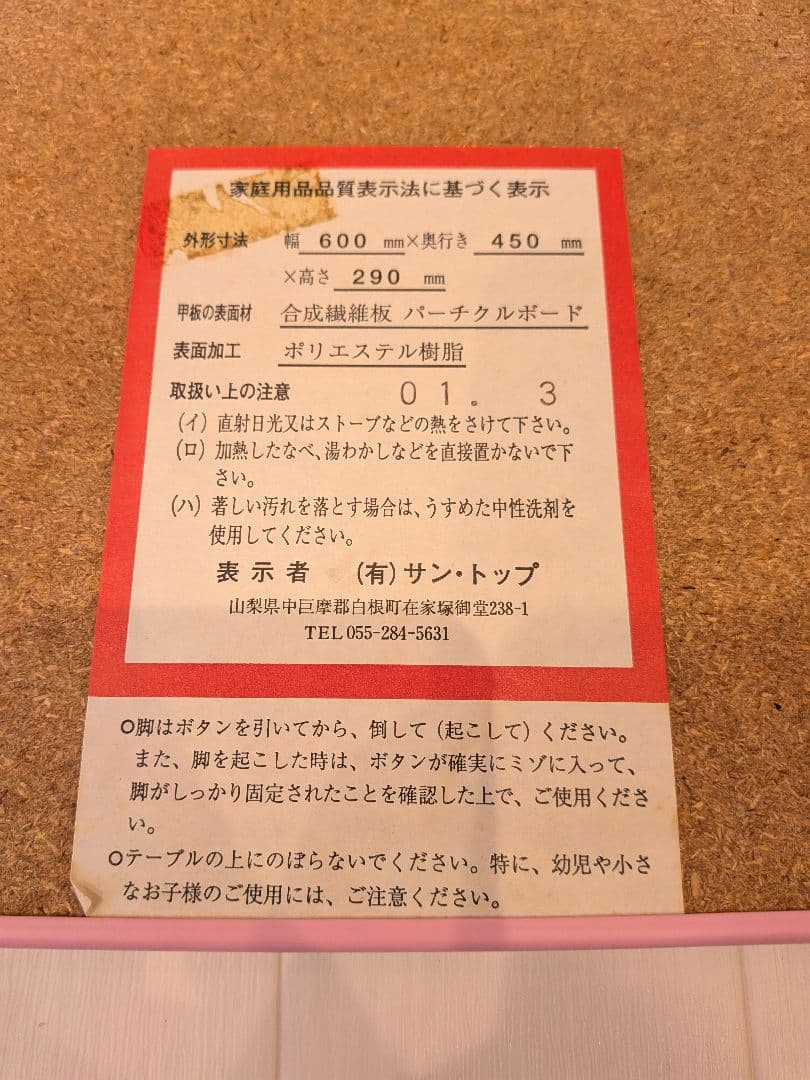 家庭用品品質表示法に基づく表示
外形寸法 幅 600 mm×奥行き 450 mm
×高さ 290 mm
甲板の表面材 合成繊維板 パーチクルボード
表面加工 ポリエステル樹脂
取扱い上の注意 01. 3
(イ) 直射日光又はストーブなどの熱をさけて下さい。
(ロ) 加熱したなべ、湯わかしなどを直接置かないで下
さい。
(ハ) 著しい汚れを落とす場合は、うすめた中性洗剤を
使用してください。
表示者 (有)サン・トップ
山梨県中巨摩郡白根町在家塚御堂238-1
TEL 055-284-5631
○脚はボタンを引いてから、倒して(起こして)ください。
また、脚を起こした時は、ボタンが確実にミゾに入って、
脚がしっかり固定されたことを確認した上で、ご使用くださ
い。
○テーブルの上にのぼらないでください。特に、幼児や小さ
なお子様のご使用には、ご注意ください。